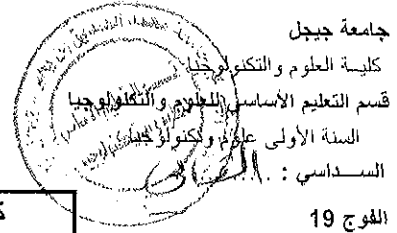 جامعة جيجل
كلية العلوم والتكنولوجيا
قسم التعليم الأساسي للعلوم والتكنولوجيا
السنة الأولى علوم وتكنولوجيا
السداسي : الثاني
الفوج 19